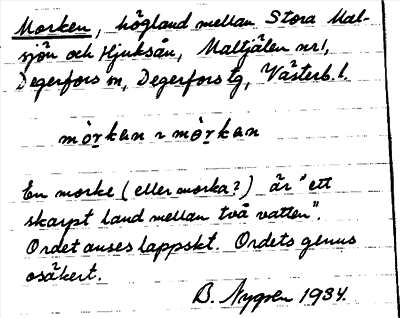 Morken, högland mellan Stora Mal-
sjön och Hjuksån, Maltjälen nr 1,
Degerfors sn, Degerfors tg, Västerb. l.
mòrkan ~ mòrkan
En morke (eller morka?) är "ett
skarpt land mellan två vatten".
Ordet anses lappskt. Ordets genus
osäkert.
B. Nygren 1934.